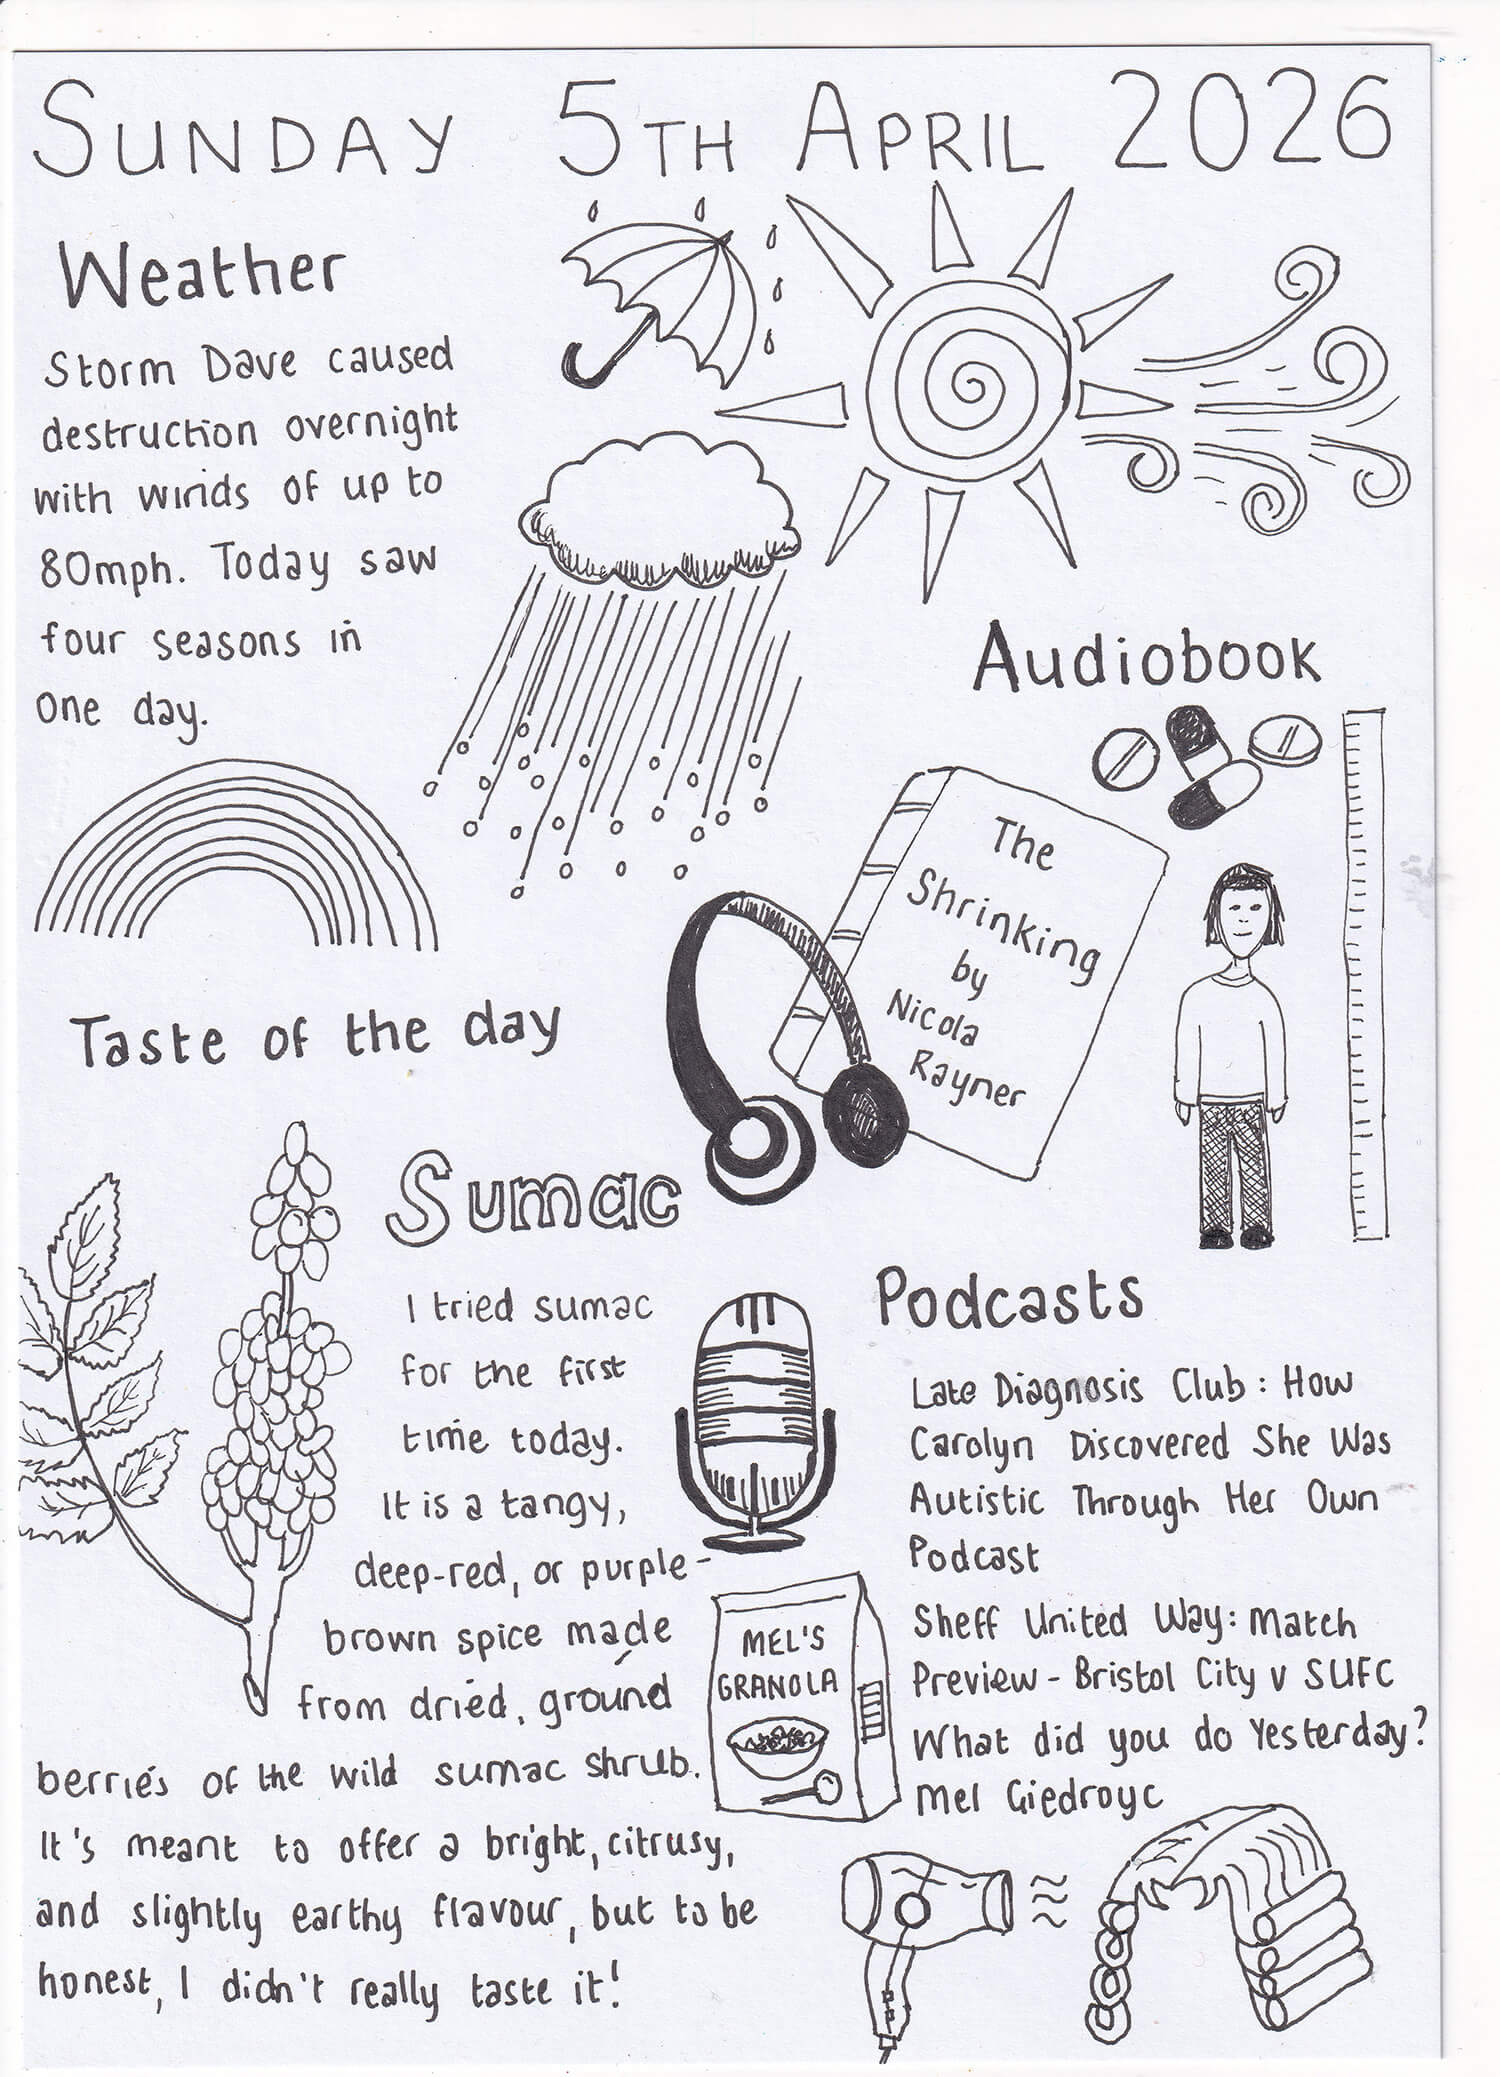 SUNDAY 5TH APRIL 2026
Weather
Storm Dave caused
destruction overnight
with winds of up to
80mph. Today saw
four seasons in
one day.
Audiobook
The
Shrinking
by
Nicola
Rayner
Taste of the day
Sumac
I tried sumac
for the first
time today.
It is a tangy,
deep-red, or purple-
brown spice made
from dried, ground
berries of the wild sumac shrub.
It's meant to offer a bright, citrusy,
and slightly earthy flavour, but to be
honest, I didn't really taste it!
Podcasts
Late Diagnosis Club: How
Carolyn Discovered She Was
Autistic Through Her Own
Podcast
Sheff United Way: Match
Preview - Bristol City v SUFC
What did you do Yesterday?
Mel Giedroyc
MEL'S
GRANOLA